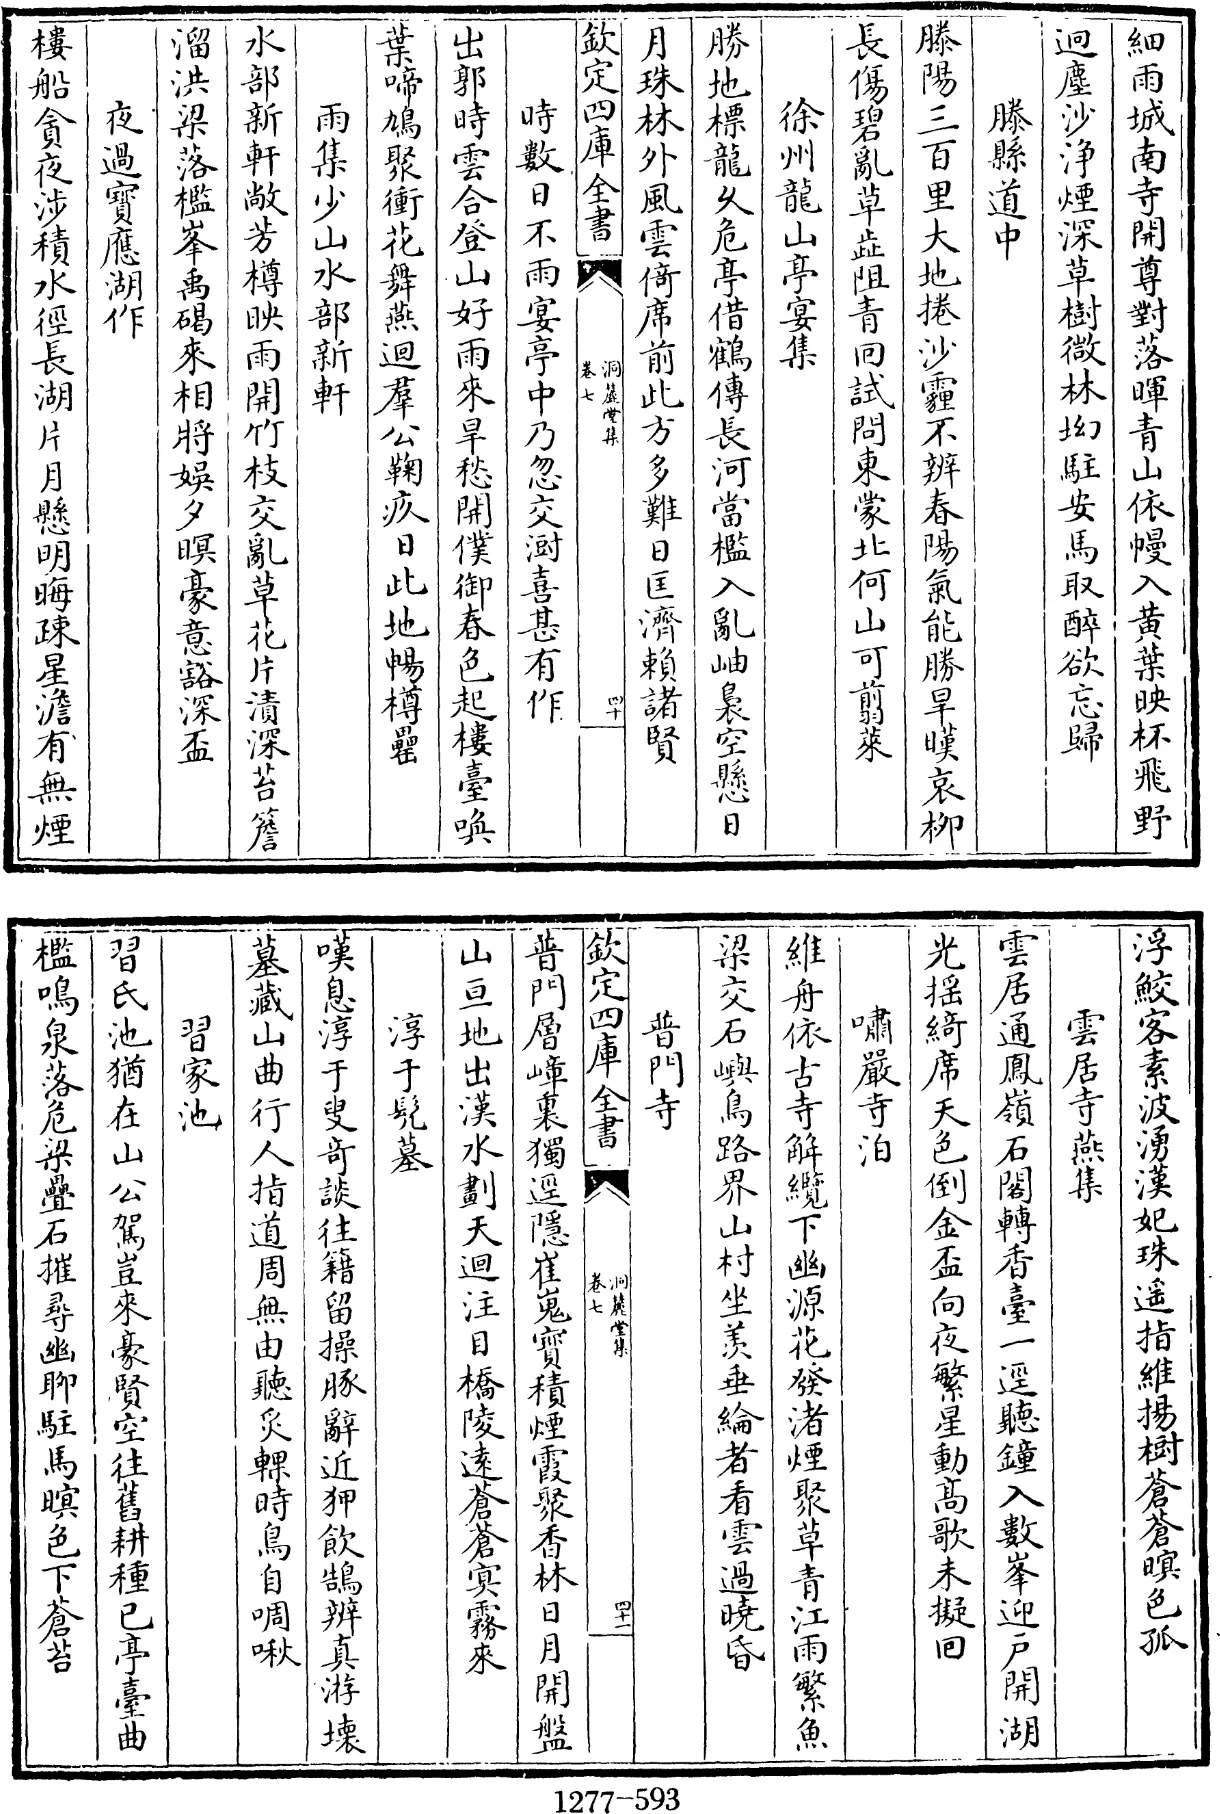 細雨城南寺開尊對落暉青山依幔入黄葉映杯飛野
迥塵沙浄煙深草樹微林坳駐安馬取醉欲忘歸
滕縣道中
滕陽三百里大地捲沙霾不辨春陽氣能勝旱暵哀柳
長傷碧亂草齒阻青回試問東蒙北何山可翦萊
徐州龍山亭宴集
勝地標龍久危亭借鶴傳長河當檻入亂岫裊空懸日
月珠林外風雲倚席前此方多難日匡濟賴諸賢
欽定四庫全書
洞麓堂集
卷七
四十
時數日不雨宴亭中乃忽交澍喜甚有作
出郭時雲合登山好雨來旱愁開僕御春色起樓臺喚
葉啼鳩聚衝花舞燕迴羣公鞠疚日此地暢樽罍
雨集少山水部新軒
水部新軒敞芳樽映雨開竹枝交亂草花片漬深苔簷
溜洪梁落檻峯禹碣來相將娛夕暝豪意豁深盃
夜過寶應湖作
樓船貪夜涉積水徑長湖片月懸明晦疎星澹有無煙
浮鮫客素波湧漢妃珠遥指維揚樹蒼蒼暝色孤
雲居寺燕集
雲居通鳳嶺石閣轉香臺一逕聽鐘入數峯迎戸開湖
光揺綺席天色倒金盃向夜繁星動髙歌未擬回
嘯巖寺泊
維舟依古寺解纜下幽源花發渚煙聚草青江雨繁魚
梁交石嶼鳥路界山村坐羨垂綸者看雲過曉昏
普門寺
欽定四庫全書
洞麓堂集
卷七
四十一
普門層嶂裏獨逕隱崔嵬寳積煙霞聚香林日月開盤
山亘地出漢水劃天迴注目橋陵遠蒼蒼寞霧來
淳于髠墓
嘆息淳于叟奇談往籍留操豚辭近狎飲鵠辨真游壊
墓藏山曲行人指道周無由聽炙輠時鳥自啁啾
習家池
習氏池猶在山公駕豈來豪賢空往舊耕種已亭臺曲
檻鳴泉落危梁疊石摧尋幽聊駐馬暝色下蒼苔
1277-593